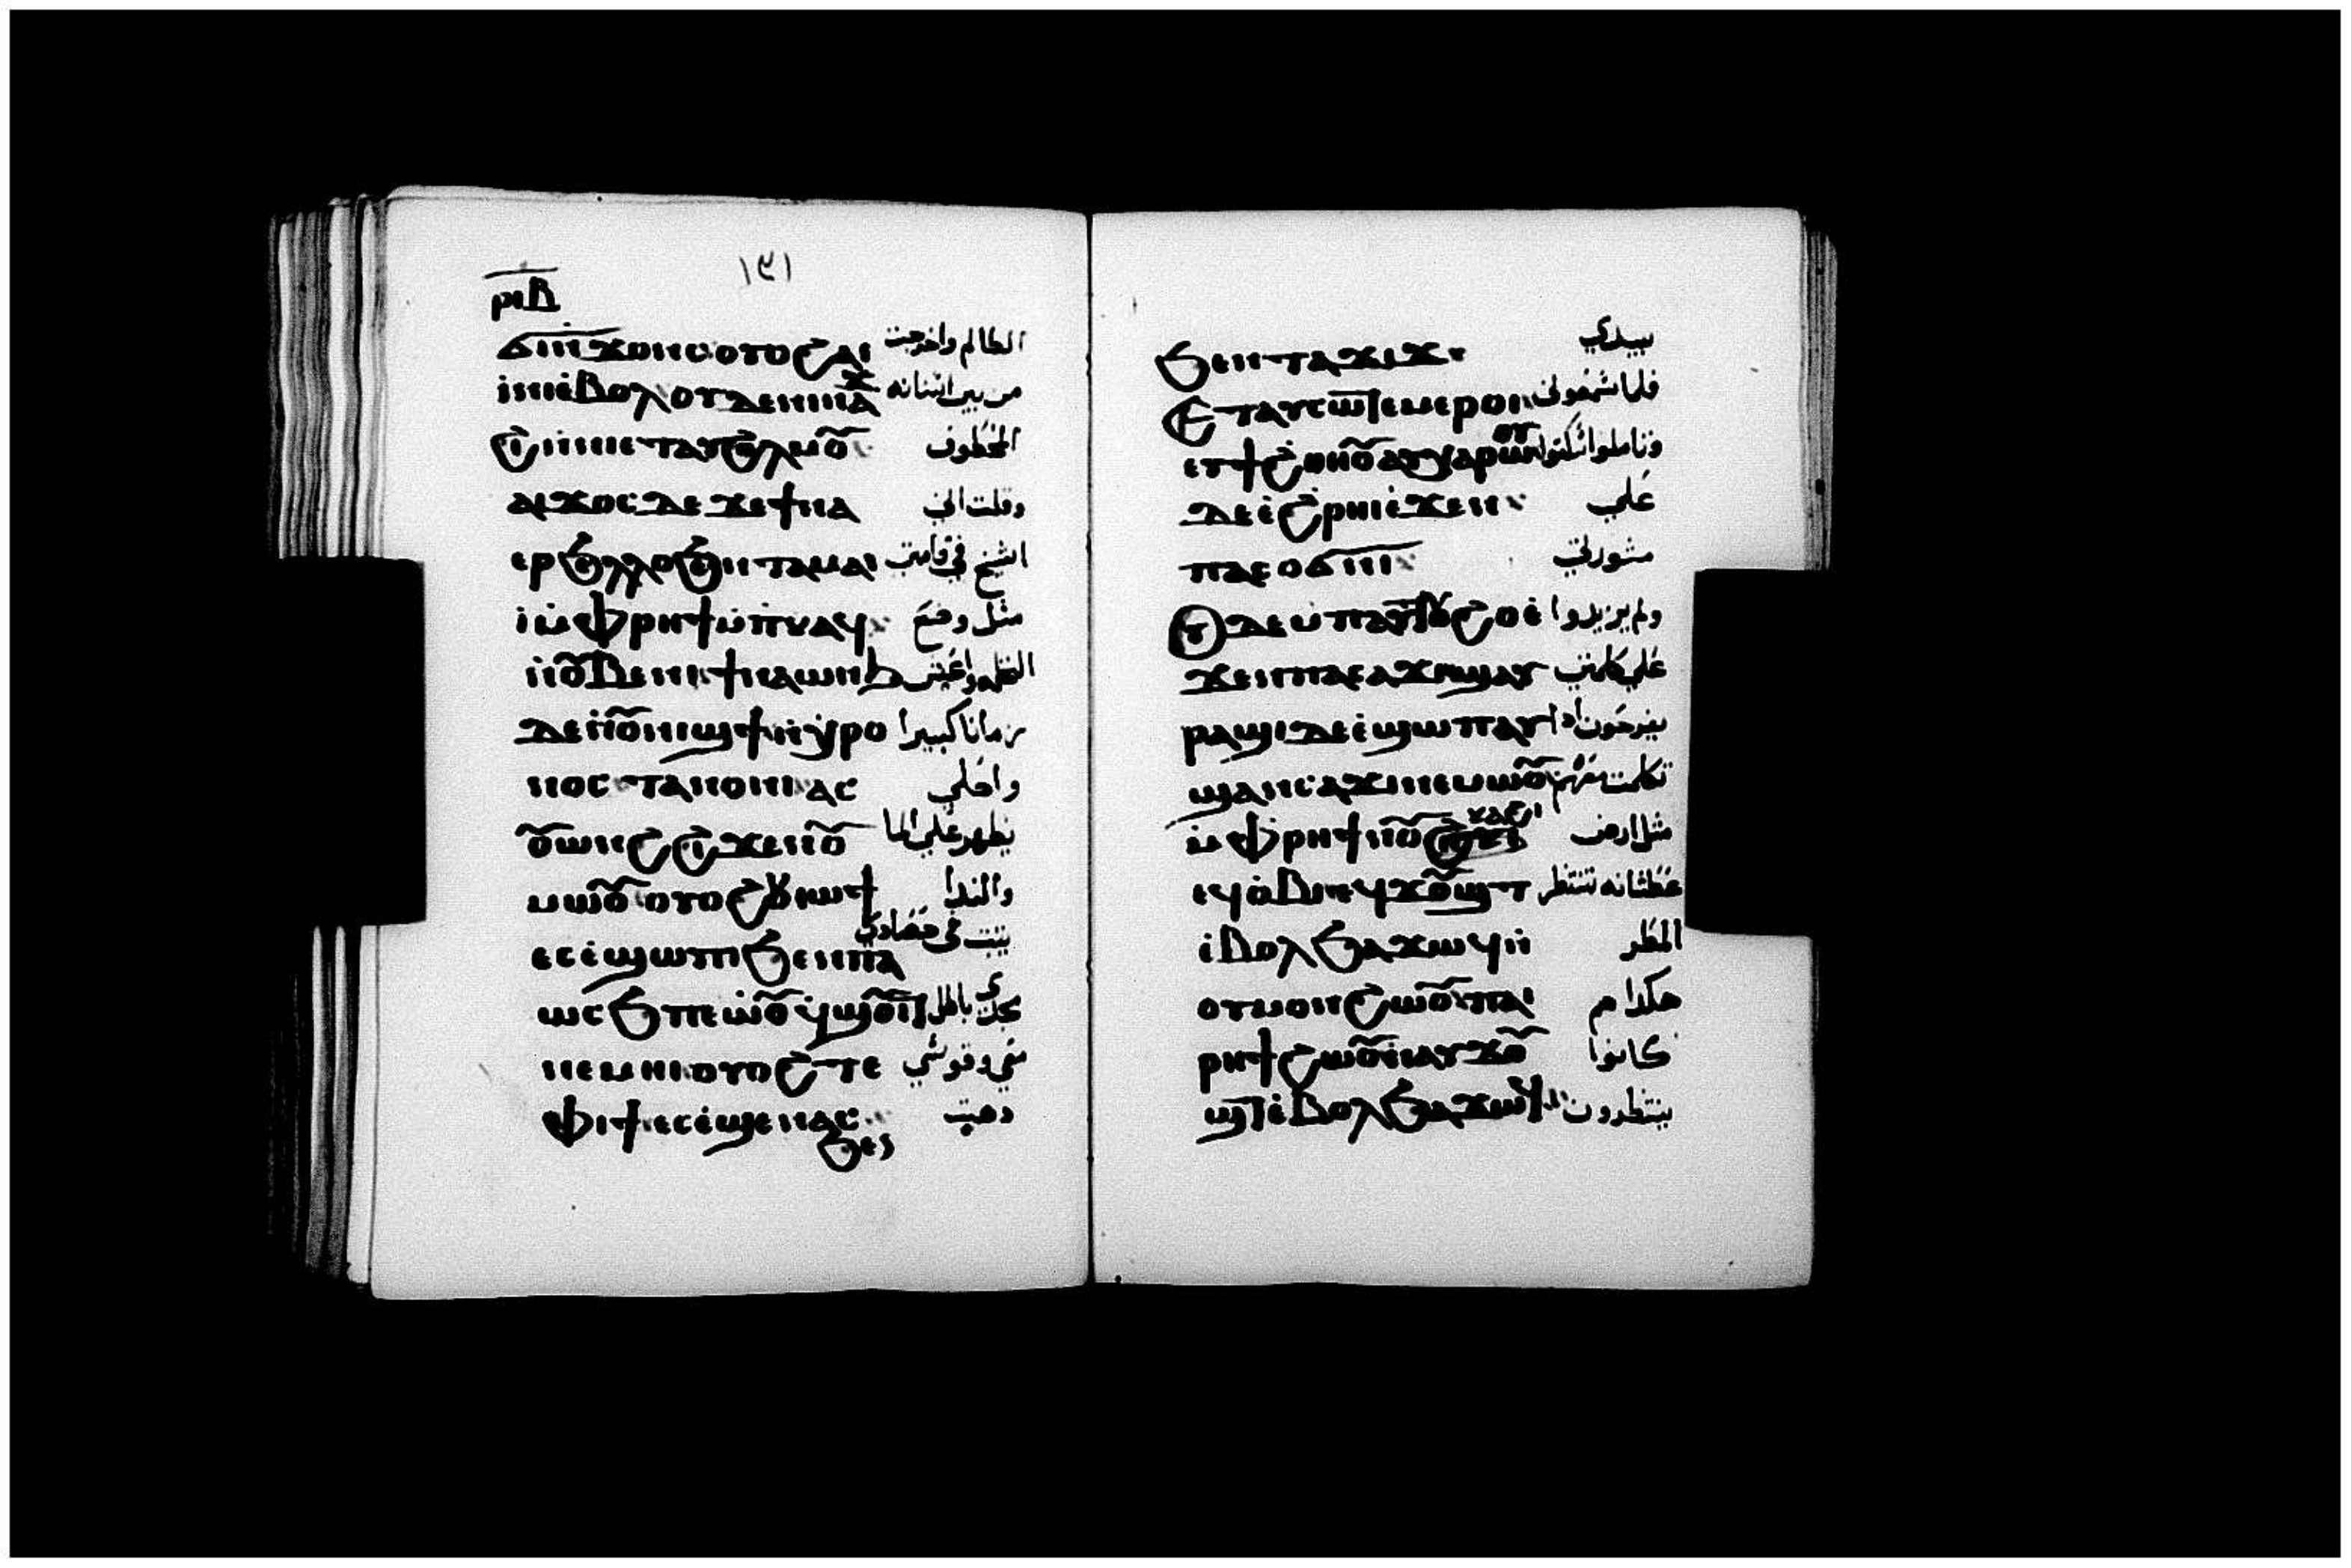 ⲣⲓⲃ
١٣١
ϭⲓⲛϫⲟⲛⲥ ⲟⲩⲟϩ ⲁⲓ الظالم واخرجت
ⲓⲛⲓ ⲉⲃⲟⲗ ⲟⲩⲇⲉ ⲛⲛⲁϫ من بين اسنانه
ϩⲓ ⲛⲛⲉⲧⲁϥϩⲗⲙⲟⲩ المخطوف
ⲁⲓϫⲟⲥ ⲇⲉ ϫⲉ ϯⲛⲁ وقلت اني
ⲉⲣϧⲉⲗⲗⲟ ϧⲉⲛ ⲧⲁⲙⲁⲓ اشيخ في قامتي
ⲓ ⲙⲫⲣⲏϯ ⲙⲡⲭⲁϥ مثل وضع
ⲛⲟⲩⲃⲉⲛⲓ ϯⲛⲁⲱⲛϧ النخله واعيش
ⲇⲉ ⲛⲟⲩⲛⲓϣϯ ⲛⲭⲣⲟ زمانا كبيرا
ⲛⲟⲥ ⲧⲁⲛⲟⲩⲛⲓ ⲁⲥ واصلي
ⲟⲩⲱⲛϩ ϩⲓϫⲉⲛ ⲟⲩ يظهر علي الما
ⲙⲱⲟⲩ ⲟⲩⲟϩ ϯⲓⲱϯ والندا
ⲉⲥⲉϣⲱⲡⲓ ϧⲉⲛ ⲡⲁ يبيت في حصادي
ⲱⲥϧ ⲡⲉⲙⲟⲩ ϥϣⲟⲩⲓⲧ مجدي باطل
ⲛⲉⲙⲏⲓ ⲟⲩⲟϩ ⲧⲉ معي وقوسي
ⲫⲓϯ ⲉⲥⲉϣⲉⲛⲁⲥ ذهبت
ϧⲉⲛ
ϧⲉⲛ ⲧⲁϫⲓϫ بيدي
ⲉⲧⲁⲩⲥⲱⲧⲉⲙ ⲉⲣⲟⲓ فلما سمعوني
ⲉⲩϯϩⲑⲏⲟⲩ ⲁⲩⲭⲁⲣⲱⲟⲩ وتاملوا سكتوا
ⲇⲉ ⲉϩⲣⲏⲓ ⲉϫⲉⲛ علي
ⲡⲁⲥⲟϭⲛⲓ مشورتي
ⲟⲩⲇⲉ ⲙⲡⲁⲩⲟⲩϩⲟ ⲉ ولم يزيدوا
ϫⲉⲛ ⲡⲁⲥⲁϫⲓ ϣⲁⲩ علي كلامي
ⲣⲁϣⲓ ⲇⲉ ⲉϣⲱⲡ ⲁⲩ يفرحون اذا
ϣⲁⲛⲥⲁϫⲓ ⲛⲉⲙⲱⲟⲩ تكلمت معهم
ⲙⲫⲣⲏϯ ⲛⲟⲩⲕⲁϩⲓ مثل ارض
ⲉϥⲟⲃⲓ ⲉϥϫⲟⲩϣⲧ عطشانه تنتظر
ⲉⲃⲟⲗ ϧⲁϫⲱϥ ⲛ المطر
ⲟⲩⲙⲟⲩⲛϩⲱⲟⲩ ⲡⲁⲓ هكذا هم
ⲣⲏϯ ϩⲱⲟⲩ ⲛⲁⲩϫⲟⲩ كانوا
ϣⲧ ⲉⲃⲟⲗ ϧⲁϫⲱⲓ ينتظرون